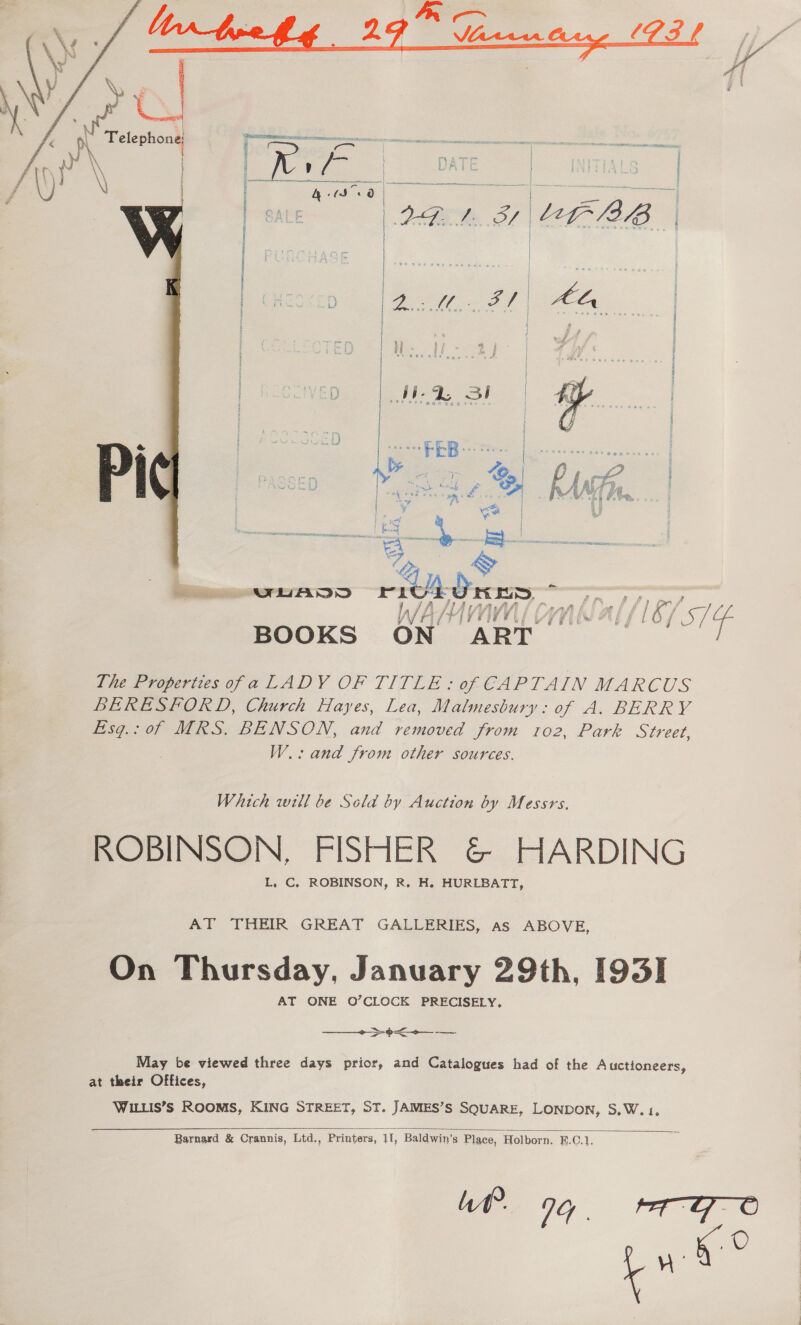 29th January 1931
Telephone
R.F DATE INITIALS
SALE 29. 1. 31
PURCHASE
CHECKED 2. 31
COLLECTED
RECEIVED 11. 2. 31
ACCESSED
FEB
PASSED 1931
W
K
Pic
GLASS PICTURES
BOOKS ON ART
The Properties of a LADY OF TITLE: of CAPTAIN MARCUS
BERESFORD, Church Hayes, Lea, Malmesbury: of A. BERRY
Esq.: of MRS. BENSON, and removed from 102, Park Street,
W.: and from other sources.
Which will be Sold by Auction by Messrs.
ROBINSON, FISHER & HARDING
L. C. ROBINSON, R. H. HURLBATT,
AT THEIR GREAT GALLERIES, AS ABOVE,
On Thursday, January 29th, 1931
AT ONE O'CLOCK PRECISELY.
May be viewed three days prior, and Catalogues had of the Auctioneers,
at their Offices,
WILLIS'S ROOMS, KING STREET, ST. JAMES'S SQUARE, LONDON, S.W. 1.
Barnard & Crannis, Ltd., Printers, 11, Baldwin's Place, Holborn. E.C.1.